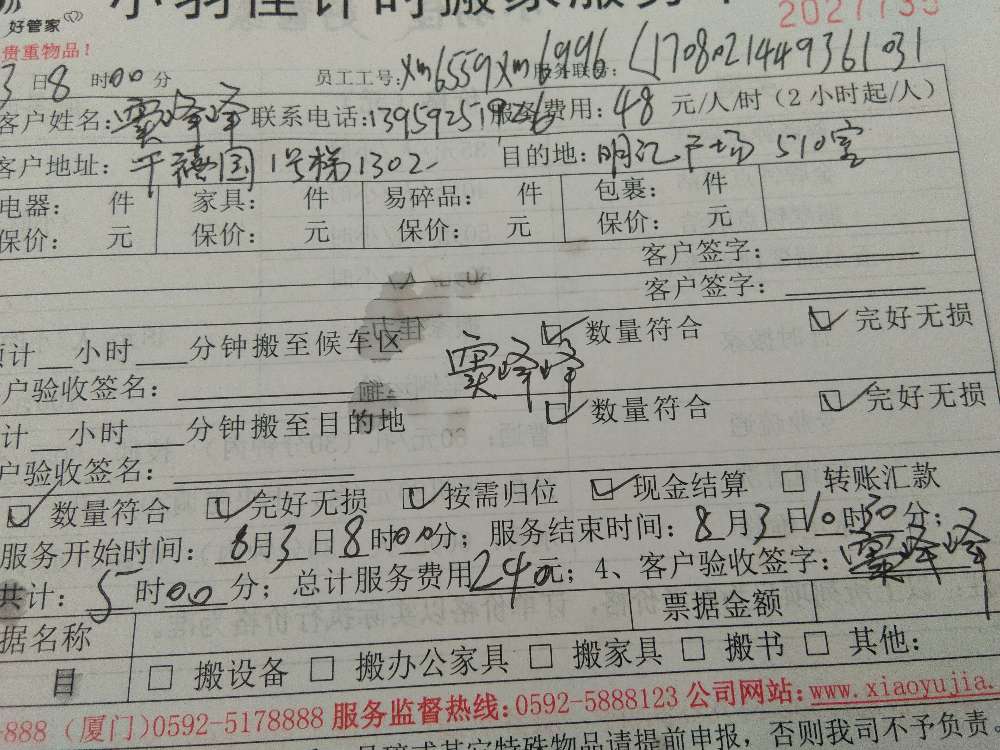 好管家
贵重物品！
3日8时00分 员工工号：xm6559xm6996 服务联单：1708021449361031
客户姓名：窦峰峰 联系电话： 服务费用：48元/人/时（2小时起/人）
客户地址：千禧园1号梯1302 目的地：明汇广场510室
电器： 件 家具： 件 易碎品： 件 包裹： 件
保价： 元 保价： 元 保价： 元 保价： 元
客户签字：
客户签字：
预计 小时 分钟搬至候车区 数量符合 完好无损
客户验收签名： 窦峰峰
预计 小时 分钟搬至目的地 数量符合 完好无损
客户验收签名：
数量符合 完好无损 按需归位 现金结算 转账汇款
服务开始时间：8月3日8时00分；服务结束时间：8月3日10时30分；
共计：5时00分；总计服务费用240元；4、客户验收签字：窦峰峰
据名称 票据金额
目 搬设备 搬办公家具 搬家具 搬书 其他：
-888（厦门）0592-5178888 服务监督热线：0592-5888123 公司网站：www.xiaoyujia.
特殊物品请提前申报，否则我司不予负责